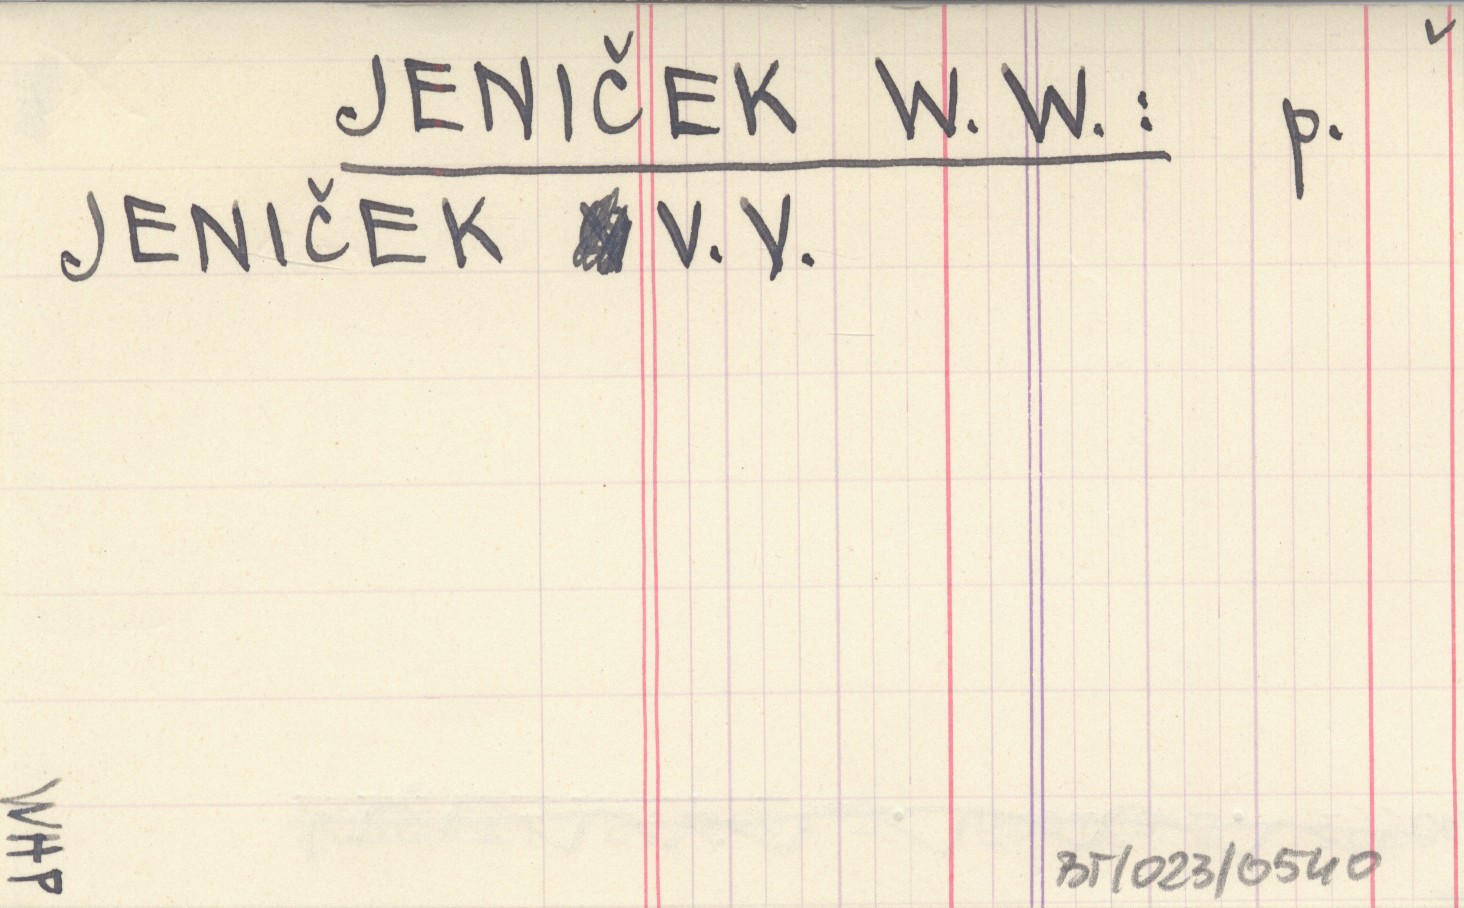 JENIČEK W. W. : p.
JENIČEK V. V.
WHP
BT/023/0540